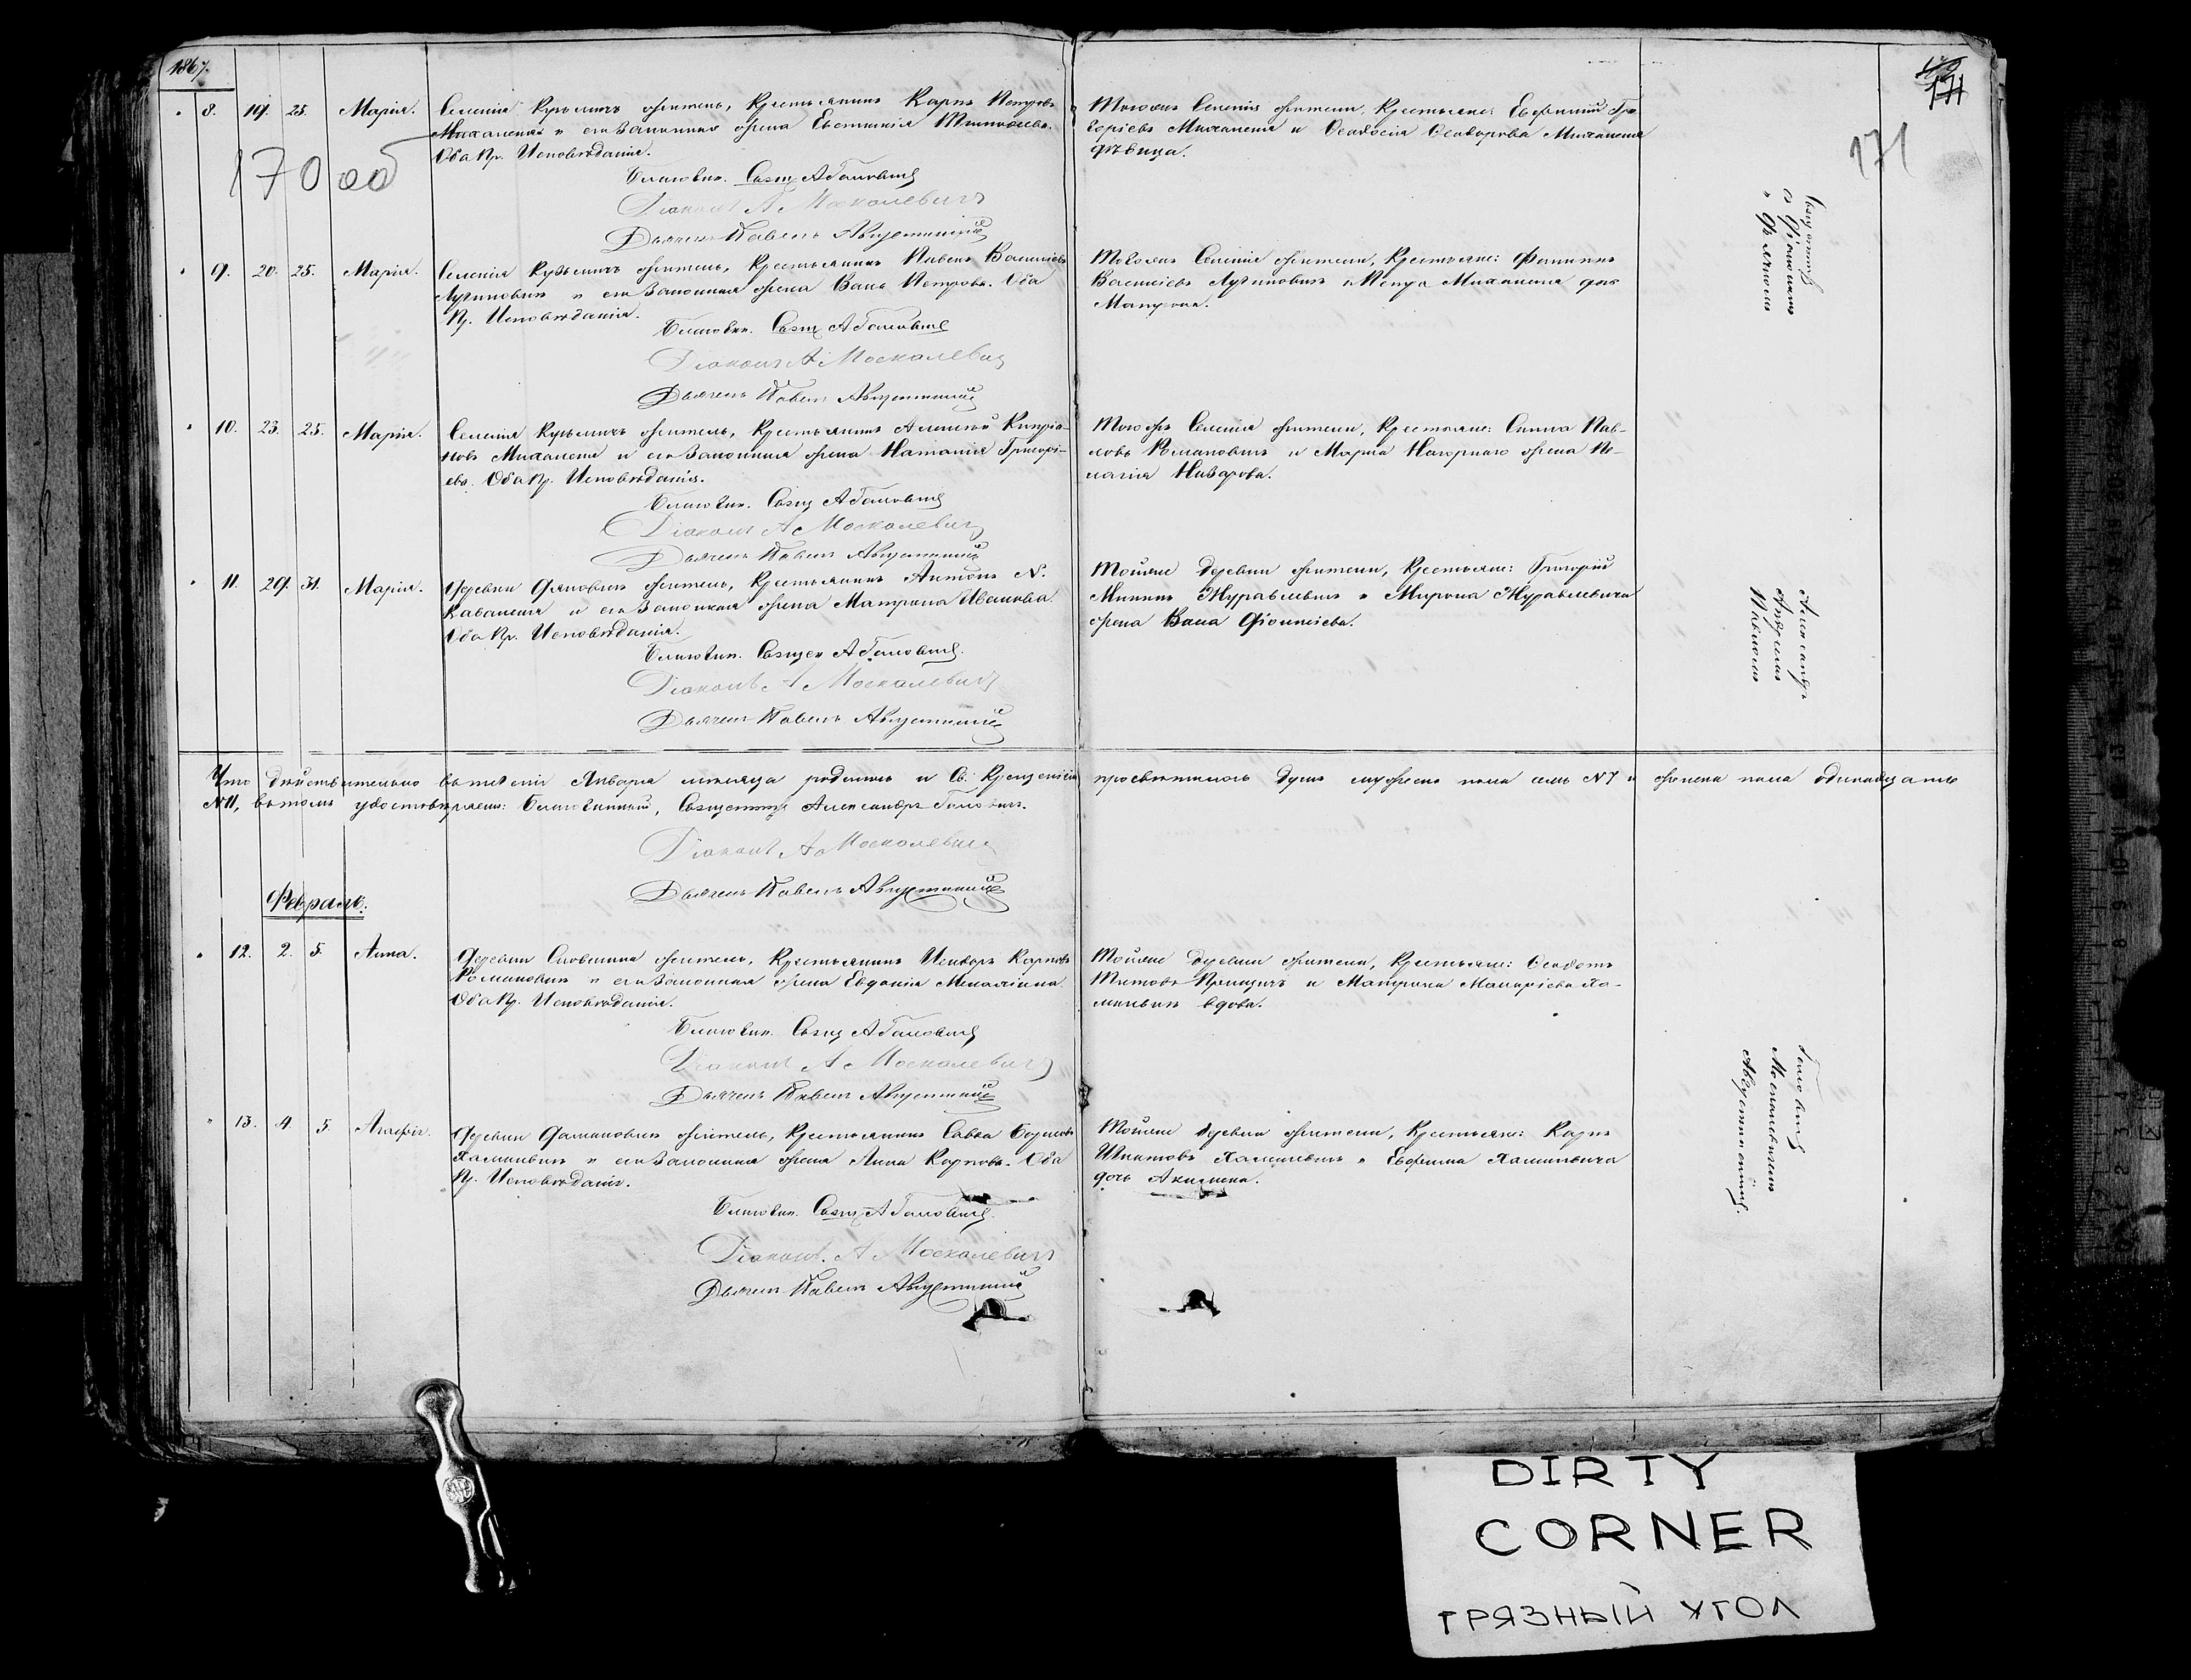 1867.
170 об
171
171
8. 19. 25. Марія.
Селенія Кузьмичъ житель, Крестьянинъ Карпъ Петровъ
Михаленя и его законная жена Евстинія
Оба Пр. Исповѣданія.
Благочин. Свящ. А Галовичъ
Діаконъ А Москалевичъ
Дьячекъ Павелъ Августинскій
Того же Селенія жители, Крестьяне: Евфимій Гри-
горіевъ Михаленя и Ѳеодосія Ѳеодорова Михаленя
дѣвица.
Священникъ
Діаконъ
Дьячекъ
9. 20. 25. Марія.
Селенія Кузьмичъ житель, Крестьянинъ Павелъ Василіевъ
и его законная жена Петрова. Оба
Пр. Исповѣданія.
Благочин. Свящ. А Галовичъ
Діаконъ А Москалевичъ
Дьячекъ Павелъ Августинскій
Того же Селенія жители, Крестьяне: Филиппъ
Василіевъ и Петра Михаленя дочь
Матрона.
10. 23. 25. Марія.
Селенія Кузьмичъ житель, Крестьянинъ Алексѣй Кипрія-
новъ Михаленя и его законная жена Наталія Григорі-
ева. Оба Пр. Исповѣданія.
Благочин. Свящ. А Галовичъ
Діаконъ А Москалевичъ
Дьячекъ Павелъ Августинскій
Того же Селенія жители, Крестьяне: Савва Пав-
ловъ Романовичъ и Марка Нагорнаго жена Пе-
лагія Назарова.
11. 29. 31. Марія.
Деревни житель, Крестьянинъ Антонъ N.
Каваленя и его законная жена Матрона Иванова.
Оба Пр. Исповѣданія.
Благочин. Священ. А Галовичъ.
Діаконъ А Москалевичъ
Дьячекъ Павелъ Августинскій
Той же Деревни жители, Крестьяне: Григорій
Мининъ Журавлевичъ и Мирона Журавлевича
жена Діонисіева.
Александръ
Андреемъ
Павломъ
Что дѣйствительно въ теченіи Января мѣсяца родилось и Св. Крещеніемъ просвѣтилось душъ мужеска пола семь N 7 и женска пола одинадцать
N 11, въ томъ удостовѣряемъ: Благочинный, Священникъ Александръ Галовичъ.
Діаконъ А Москалевичъ
Дьячекъ Павелъ Августинскій
Февраль.
12. 2. 5. Анна.
Деревни житель, Крестьянинъ Исидоръ Карповъ
Романовичъ и его законная жена Евдокія
Оба Пр. Исповѣданія.
Благочин. Свящ. А Галовичъ
Діаконъ А Москалевичъ
Дьячекъ Павелъ Августинскій
Той же деревни жители, Крестьяне: Ѳеодотъ
Титовъ и Матрона Макаріева Ха-
миневичъ вдова.
Галовичъ
Москалевичемъ
Августинскимъ.
13. 4. 5. Агафія.
Деревни житель, Крестьянинъ Савва Борисовъ
Хаминевичъ и его законная жена Анна Карпова. Оба
Пр. Исповѣданія.
Благочин. Свящ. А Галовичъ.
Діаконъ А Москалевичъ
Дьячекъ Павелъ Августинскій
Той же деревни жители, Крестьяне: Карпъ
Игнатовъ Хаминевичъ и Евфима Хаминевича
дочь Акилина.
DIRTY
CORNER
ГРЯЗНЫЙ УГОЛ